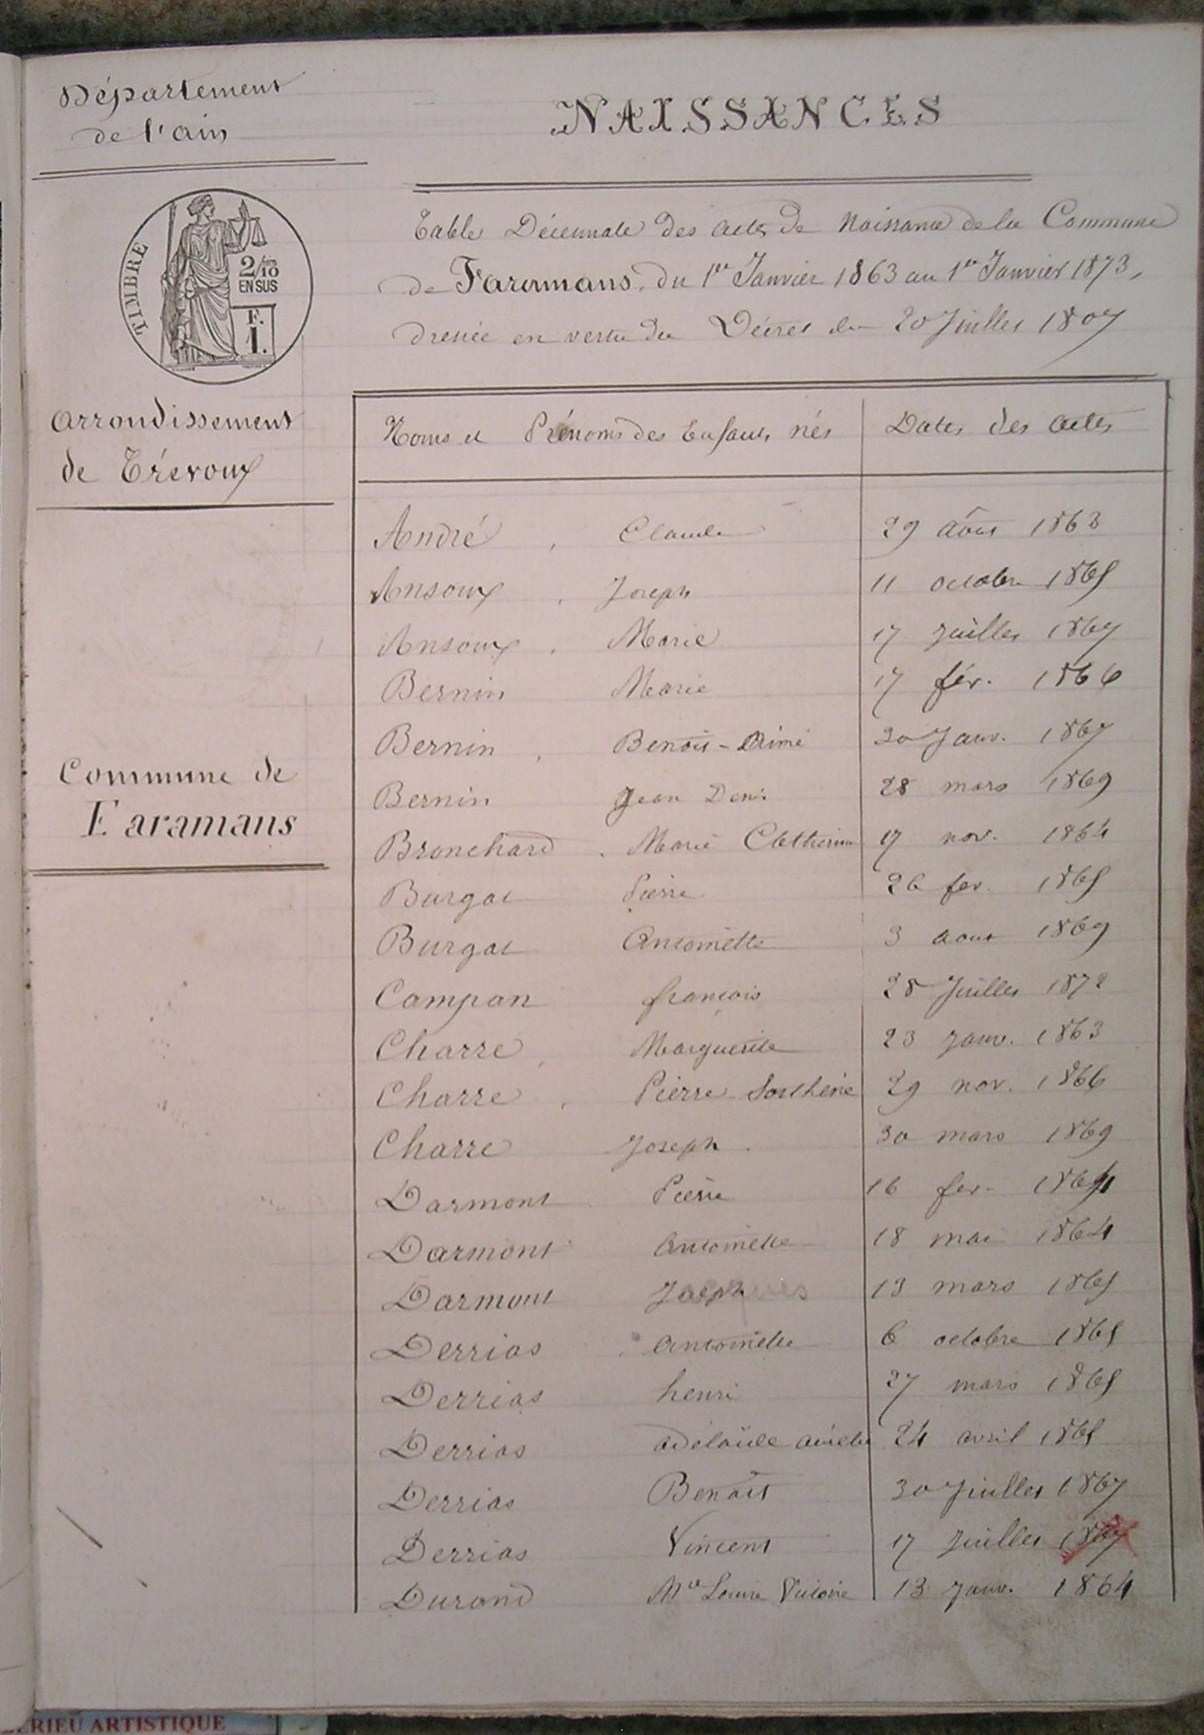 Département
de l'ain
NAISSANCES
TIMBRE
2/10
EN SUS
F.
1.
Table Décennale des actes de Naissance de la Commune
de Faramans, du 1er Janvier 1863 au 1er Janvier 1873,
dressée en vertu du Décret du 20 Juillet 1807
arrondissement
de Trévoux
Commune de
Faramans
Noms et Prénoms des Enfants nés Dates des actes
André Claude 29 août 1863
Ansoux Joseph 11 octobre 1865
Ansoux Marie 17 Juillet 1867
Bernin Marie 17 fév. 1866
Bernin Benoit-Aimé 30 Janv. 1867
Bernin Jean Denis 28 mars 1869
Bronchard Marie Catherine 17 nov. 1864
Burgat Pierre 26 fev. 1865
Burgat Antoinette 3 aout 1869
Campan françois 28 Juillet 1872
Charre Marguerite 23 janv. 1863
Charre Pierre Sosthène 29 nov. 1866
Charre Joseph 30 mars 1869
Darmont Pierre 16 fev. 1864
Darmont Antoinette 18 mai 1864
Darmont 13 mars 1865
Derrias Antoinette 6 octobre 1865
Derrias henri 27 mars 1865
Derrias adélaïde 24 avril 1865
Derrias Benoit 30 Juillet 1867
Derrias Vincent 17 Juillet
Durand Mie Louise Victoire 13 Janv. 1864
ERIEU ARTISTIQUE